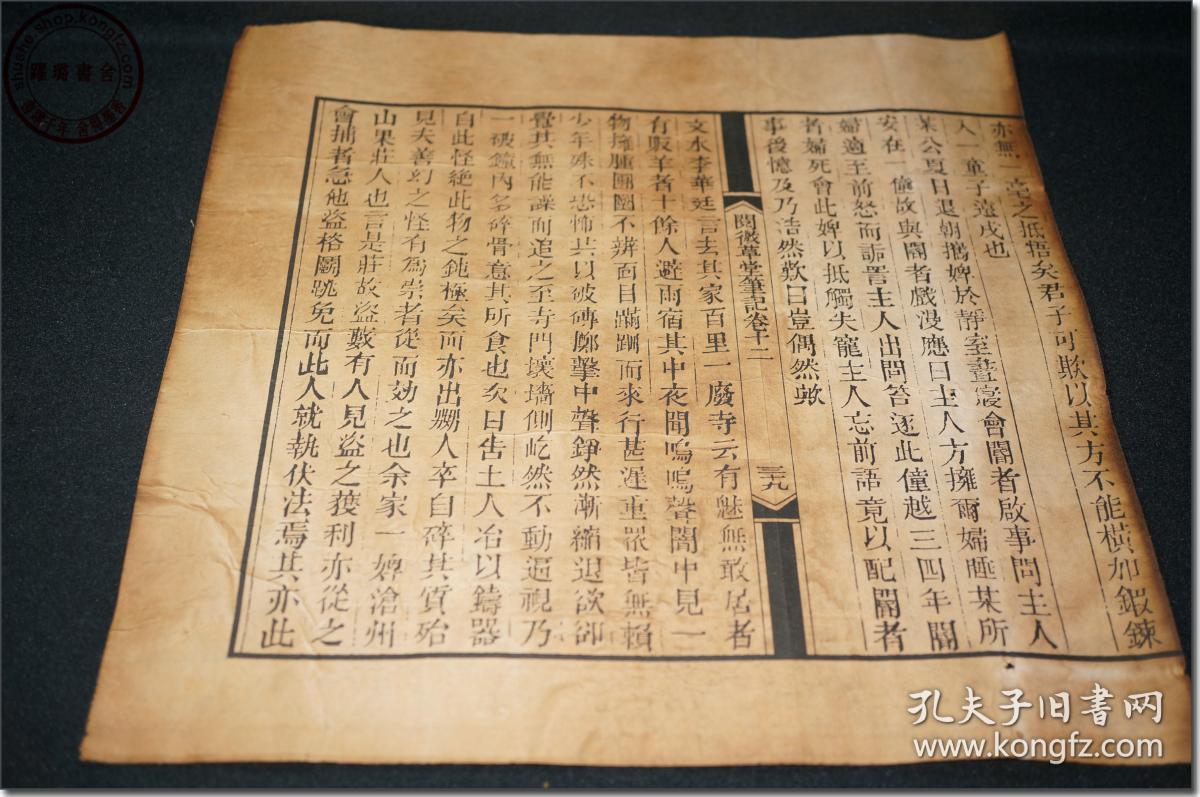 亦無一堂之抵牾矣君子可欺以其方不能橫加鍛鍊
入一童子遠戍也
某公夏日退朝攜婢於靜室晝寢會閽者啟事問主人
安在一僮故與閽者戲漫應曰主人方擁爾婦睡某所
婦適至前怒而詬詈主人出問笞逐此僮越三四年閽
者婦死會此婢以抵觸失寵主人忘前語竟以配閽者
事後憶及乃浩然歎曰豈偶然歟
閱微草堂筆記卷十二
三九
文水李華廷言去其家百里一廢寺云有魅無敢居者
有販羊者十餘人避雨宿其中夜聞嗚嗚聲闇中見一
物擁腫團圞不辨面目蹣跚而來行甚遲重眾皆無賴
少年殊不恐怖共以破磚擲擊中聲錚然漸縮退欲卻
覺其無能譟而追之至寺門壞墻側屹然不動逼視乃
一破鐘內多碎骨意其所食也次日告土人冶以鑄器
自此怪絕此物之鈍極矣而亦出嬲人卒自碎其質殆
見夫善幻之怪有為祟者從而効之也余家一婢滄州
山果莊人也言是莊故盜藪有人見盜之獲利亦從之
會捕者急他盜格鬭跳免而此人就執伏法焉其亦此
躍鱗書舍
shushe.shop.kongfz.com
孔夫子旧书网
www.kongfz.com